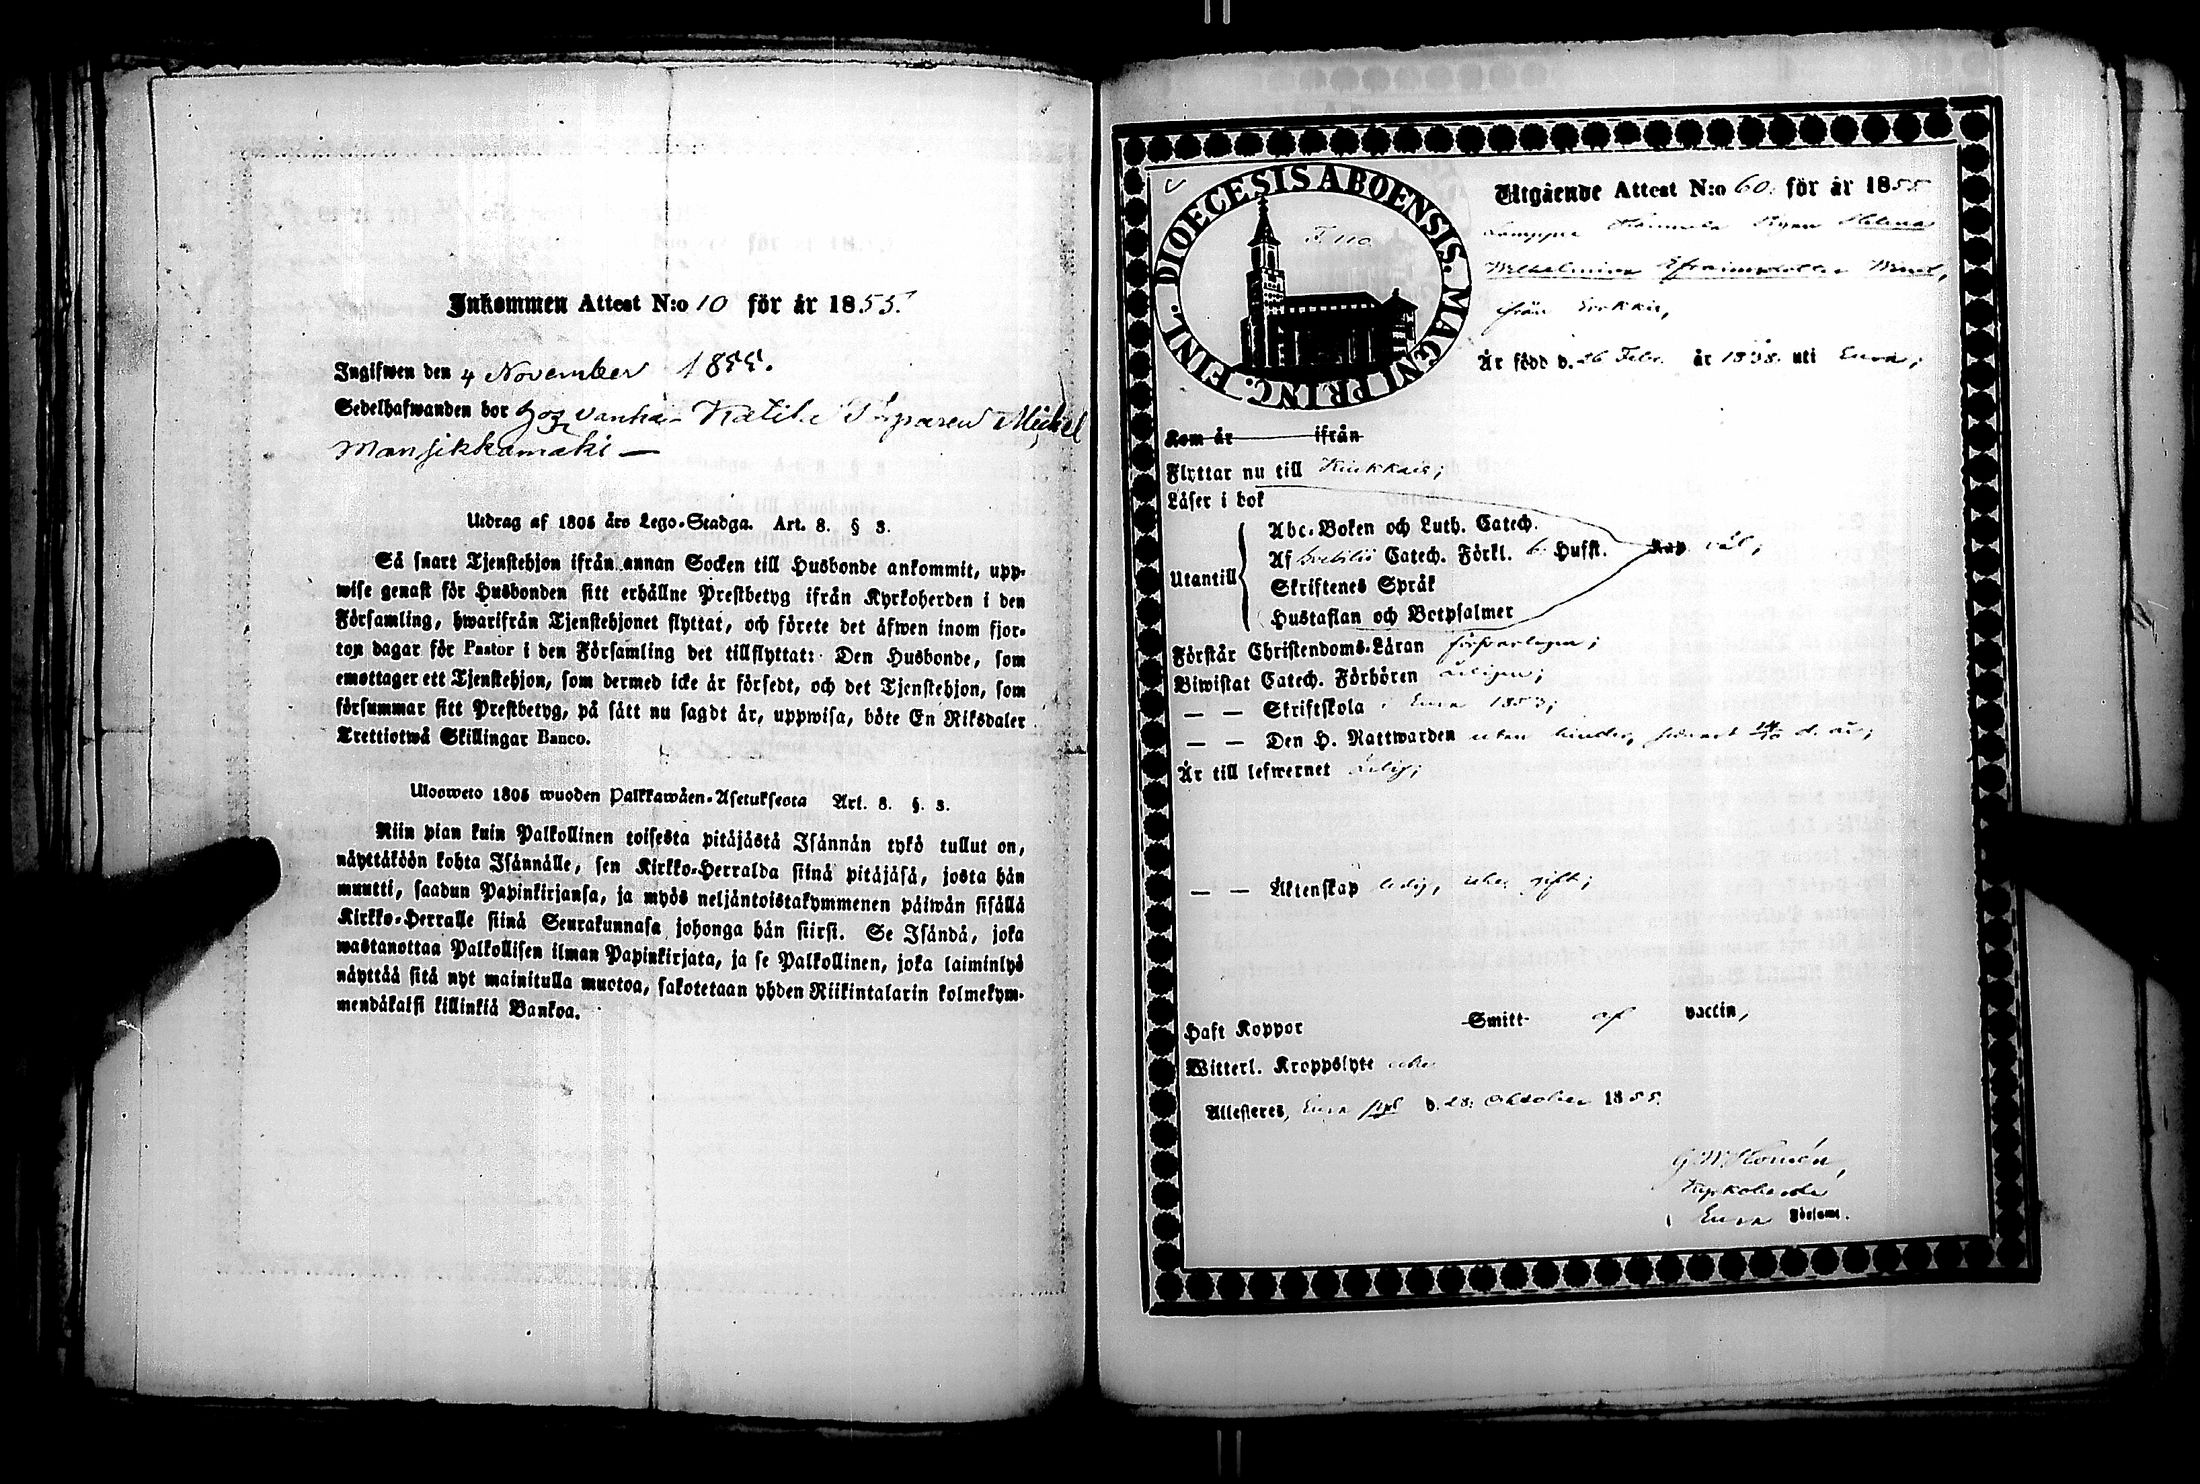 Inkommen Attest N:o 10 för år 1855.
Ingifwen den 4 November 1855.
Sedelhafwanden bor hos Torparen Mickel
Mansikkamäki —
Utdrag af 1805 års Lego-Stadga. Art. 8. § 3.
Så snart Tjenstehjon ifrån annan Socken till Husbonde ankommit, upp-
wise genast för Husbonden sitt erhållne Prestbetyg ifrån Kyrkoherden i den
Församling, hwarifrån Tjenstehjonet flyttat, och förete det äfwen inom fjor-
ton dagar för Pastor i den Församling det tillflyttat: Den Husbonde, som
emottager ett Tjenstehjon, som dermed icke är försedt, och det Tjenstehjon, som
försummar sitt Prestbetyg, på sätt nu sagdt är, uppwisa, böte En Riksdaler
Trettiotwå Skillingar Banco.
Ulosweto 1805 wuoden Palkkawäen-Asetuksesta Art. 8. §. 3.
Niin pian kuin Palkollinen toisesta pitäjästä Isännän tykö tullut on,
näyttäköön kohta Isännälle, sen Kirkko-Herralda siinä pitäjäsä, josta hän
muutti, saadun Papinkirjansa, ja myös neljäntoistakymmenen päiwän sisällä
Kirkko-Herralle siinä Seurakunnasa johonga hän siirsi. Se Isändä, joka
wastanottaa Palkollisen ilman Papinkirjata, ja se Palkollinen, joka laiminlyö
näyttää sitä nyt mainitulla muotoa, sakotetaan yhden Riikintalarin kolmekym-
mendäkaksi killinkiä Bankoa.
DIOECESIS ABOENSIS. MAGNI PRINC. FINL.
F. 110
Utgående Attest N:o 60. för år 1855
Pigan Helena
Wilhelmina Efraimsdotter
ifrån
Är född d. 26 Febr. år 1838. uti Eura;
Kom år ifrån
Flyttar nu till
Läser i bok
Abc-Boken och Luth. Catech.
Af Svebilii Catech. Förkl. 6. Hufst. Kap. väl;
Utantill
Skriftenes Språk
Hustaflan och Botpsalmer
Förstår Christendoms-Läran försvarligen;
Biwistat Catech. Förhören årligen;
— — Skriftskola i Eura 1853;
— — Den H. Nattwarden utan hinder, senast d. år;
Är till lefwernet ärlig;
— — Äktenskap ledig, icke gift;
Haft Koppor Smitt af vaccin,
Witterl. Kroppslyte utan
Attesteres, Eura d. 28. Oktober 1855.
Kyrkoherde
i Eura Församl.